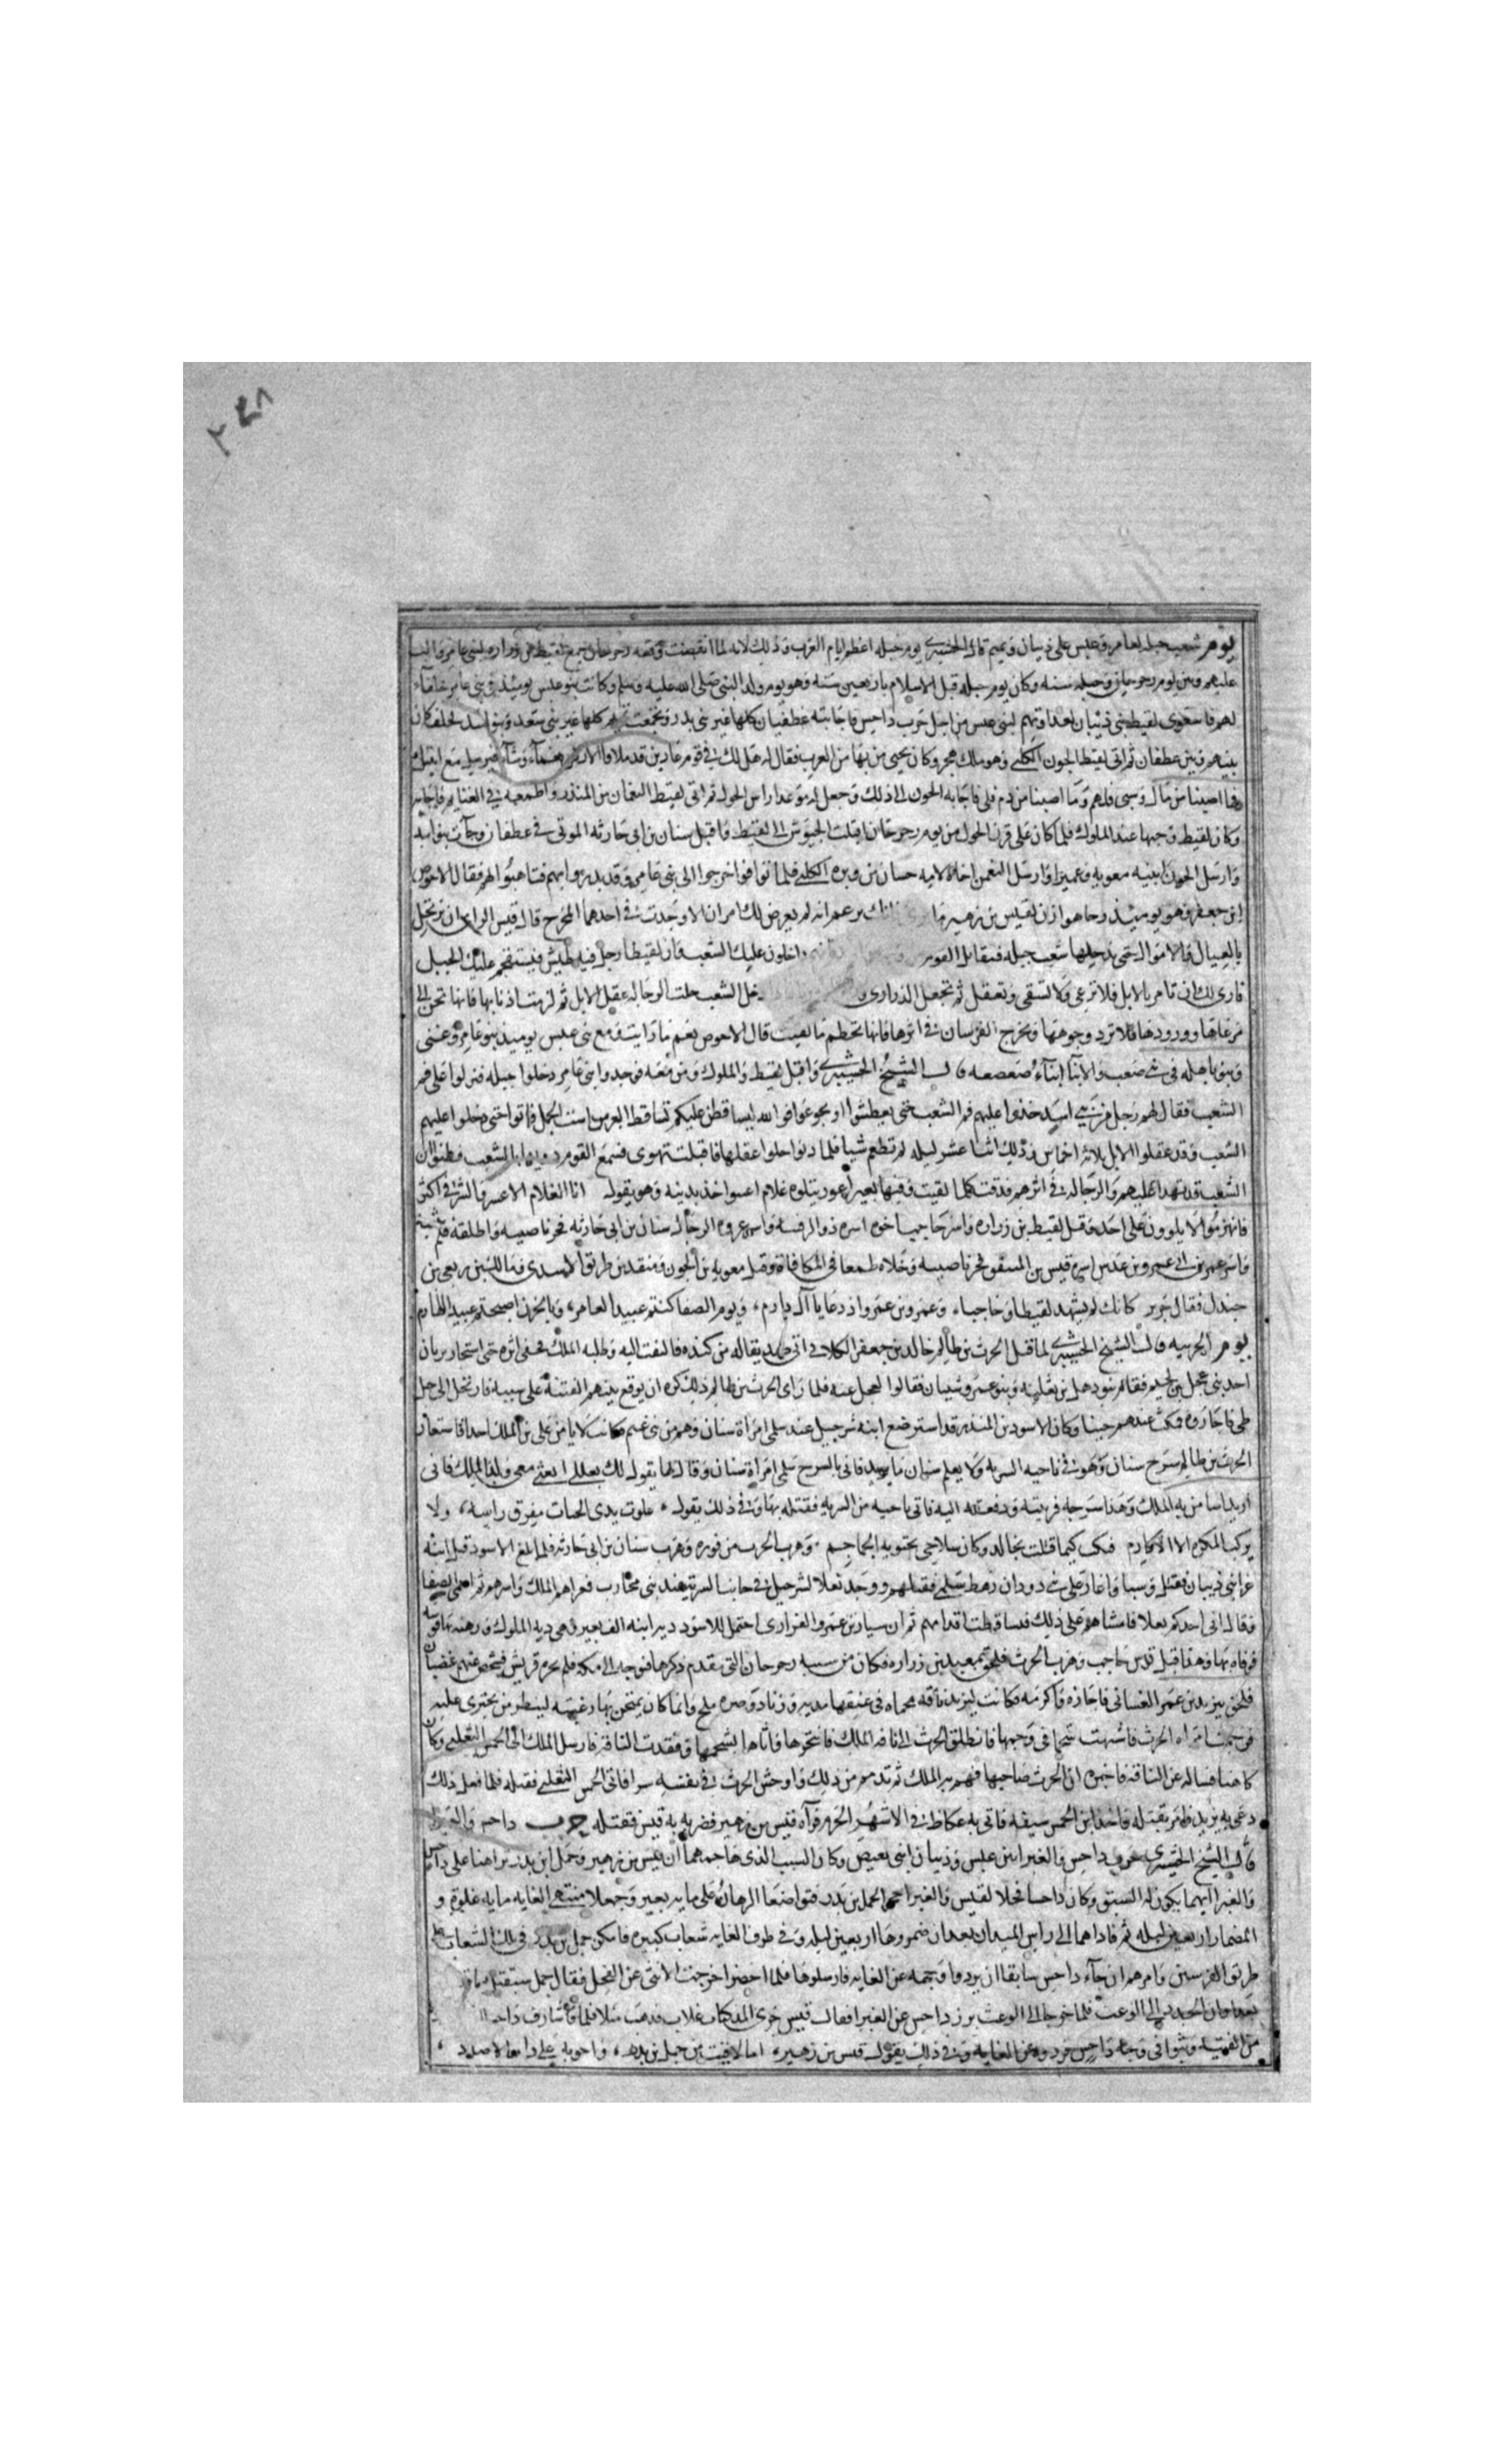 ٢٤٨
يوم شعب جبله لعامر وعبس على ذبيان وتميم قال الخشيبرى يوم جبله اعظم ايام العرب وذلك لانه لما انقضت وقعه رحرحان جمع لقيط بن زراره لبنى عامر والب
عليهم وبين يوم رحرحان وجبله سنه وكان يوم جبله قبل الاسلام باربعين سنه وهو يوم ولد النبى صلى الله عليه وسلم وكانت بنو عبس يومئذ فى بنى عامر حلفاء
لهم فاستعدى لقيط بنى ذبيان لعداوتهم لبنى عبس من اجل حرب داحس فاجابته غطفان كلها غير بنى بدر وتجمعت تميم كلها غير بنى سعد وبنو اسد لحلف كان
بينهم وبين غطفان ثم اتى لقيط الجون الكلبى وهو ملك هجر وكان يحيى من بها من العرب فقال له هل لك فى قوم غادين قد ملاوا الارض نعما وشآء فترسل معى ابنيك
فما اصبنا من مال وسبى فلهم وما اصبنا من دم فلى فاجابه الجون الى ذلك وجعل له موعدا راس الحول ثم اتى لقيط النعمان بن المنذر واطمعه فى الغنايم فاجابه
وكان لقيط وجيها عند الملوك فلما كان على قرن الحول من يوم رحرحان اقبلت الجيوش الى لقيط واقبل سنان بن ابى حارثه المرى فى غطفان وجآت بنو اسد
وارسل الجون ابنيه معويه وعميرا وارسل النعمن اخاه لامه حسان بن وبره الكلبى فلما توافوا خرجوا الى بنى عامر وقد نذروا بهم فتاهبوا لهم فقال الاحوص
ابن جعفر وهو يومئذ رحا هوازن لقيس بن زهير ما انك تزعم انه لم يعرض لك امران الا وجدت فى احدهما المخرج قال قيس الراى ان نرتحل
بالعيال والاموال حتى ندخلها شعب جبله فنقاتل القوم داخلون عليك الشعب وان لقيطا رجل فيه طيش فيستقحم عليك الجبل
فارى لك ان تامر بالابل فلا ترعى ولا تسقى وتعقل ثم تجعل الذرارى دخل الشعب حلت الرجاله عقل الابل ثم لزمت اذنابها فانها تحن الى
مرعاها وورودها فلا ترد وجوهها وتخرج الفرسان فى اثرها فانها تحطم ما لقيت قال الاحوص نعم ما رايت ومع بنى عبس يوميذ بنو عامر وغنى
وبنو باهله فى بنى صعب والابنآ ابنآء صعصعه قال الشيخ الخشيبرى واقبل لقيط والملوك ومن معه فوجدوا بنى عامر دخلوا جبله فنزلوا على فم
الشعب فقال لهم رجل من بنى اسد خذوا عليهم فم الشعب حتى يعطشوا او يجوعوا فو الله ليساقطن عليكم تساقط البعر من است الجمل فاتوا حتى دخلوا عليهم
الشعب وقد عقلوا الابل ثلاثه اخماس وذلك اثنا عشر ليله لم تطعم شيا فلما دنوا حلوا عقلها فاقبلت تهوى فسمع القوم دويها بالشعب فظنوا ان
الشعب قد تهدا عليهم والرجاله فى اثرهم فدقت كلما لقيت وفيها بعير اعور يتلوه غلام اعسر اخذ بذنبه وهو يقول انا الغلام الاعسر والشر فى اكثر
فانهزموا لا يلوون على احد وقتل لقيط بن زراره واسر حاجبا اخوه اسره ذو الرقيبه واسر عروه الرحال سنان بن ابى حارثه فجز ناصيته واطلقه فلم يثبه
واسر عمرو بن ابى عمرو بن عدس اسره قيس بن المنتفق فجز ناصيته وخلاه طمعا فى المكافاة وقتل معويه بن الجون ومنقذ بن طريق الاسدى ومالك بن ربعى بن
جندل فقال جرير كانك لم تشهد لقيطا وحاجبا، وعمرو بن عمرو اذ دعا يا آل دارم، ويوم الصفا كنتم عبيدا لعامر، وبالحزن اصبحتم عبيد اللهازم
يوم الخريبه قال الشيخ الخشيبرى لما قتل الحرث بن ظالم خالد بن جعفر الكلابى اتى صديقا له من كنده فالتفت اليه وطلبه الملك فخفى اثره حتى استجار بزياد
احد بنى عجل بن لجيم فقام بنو ذهل بن ثعلبه وبنو عمرو وشيبان فقالوا لعجل عنه فلما راى الحرث بن ظالم ذلك كره ان يوقع بينهم الفتنه على سببه فارتحل الى جبل
طى فاجاروه فمكث عندهم حينا وكان الاسود بن المنذر قد استرضع ابنه شرحبيل عند سلمى امراة سنان وهو من بنى غنم فكانت لا يامن على بن الملك احدا فاستعار
الحرث بن ظالم سرج سنان وهو فى ناحيه السريه ولا يعلم سنان ما يريد فاتى بالسرج سلمى امراة سنان وقال لها يقول لك بعلك ابعثى معى ولد الملك فانى
اريد ان استامن به الملك وهذا سرجه فزينته ودفعته اليه فاتى ناحيه من السريه فقتله بها وفى ذلك يقول، علوت بذى الحيات مفرق راسه، ولا
يركب المكروه الا الاكارم فتكت كما قتلت بخالد وكان سلاحى تحتويه الجماجم، وهرب الحرث من فوره وهرب سنان بن ابى حارثه فلما بلغ الاسود قتل ابنه
غزا بنى ذبيان فقتل وسبا واغار على بنى دودان رهط سلمى فقتلهم ووجد نعلا لشرحبيل فى جانب السريه عند بنى محارب فغزاهم الملك واسرهم ثم احمى الصفا
فقال انى احذكم نعلا فامشاهم على ذلك فتساقطت اقدامهم ثم ان سيار بن عمرو الفزارى احتمل للاسود ديه ابنه الف بعير وهى ديه الملوك ورهنه بها قوسه
فوفاه بها وهذا قبل قوس حاجب وهرب الحرث فلحق بمعبد بن زراره فكان من سببه رحرحان التى تقدم ذكرها فتوجه الى مكه فلم تجره قريش فتحض عنهم غضبان
فلحق بيزيد بن عمرو الغسانى فاجاره واكرمه وكانت ليزيد ناقه محماه فى عنقها مديه وزناد وصره ملح وانما كان يمتحن بها رعيته لينظر من يجترى عليه
فوحمت امراه الحرث فاشتهت شحما فى وحمها فانطلق الحرث الى ناقه الملك فانتحرها فاتاها بشحمها وفقدت الناقة فارسل الملك الى الخمس التغلبى وكان
كاهنا فساله عن الناقه فاخبره ان الحرث صاحبها فهم به الملك ثم تذمم من ذلك واوحش الحرث فى نفسه سرا فاتى الخمس التغلبى فقتله فلما فعل ذلك
دعى به يزيد فامر بقتله فاخذ ابن الخمس سيفه فاتى به عكاظ فى الاشهر الحرم فرآه قيس بن زهير فضربه به قيس فقتله حرب داحس والغبرا
قال الشيخ الخشيبرى حرب داحس والغبرا بين عبس وذبيان ابنى بغيض وكان السبب الذى هاجه هما ان قيس بن زهير وحمل ابن بدر تراهنا على داحس
والغبرا ايهما يكون له السبق وكان داحسا فحلا لقيس والغبرا حجر الحمل بن بدر فتواضعا الرهان على مايه بعير وجعلا منتهى الغايه مايه غلوة و
المضمار اربعين ليله ثم قاداهما الى راس الميدان بعد ان ضمروها اربعين ليله وفى طرف الغايه شعاب كبيره فامكن حمل بن بدر فى تلك الشعاب على
طريق الفرسين وامرهم ان جآء داحس سابقا ان يردوا وجهه عن الغايه فارسلوها فلما احضرا خرجت الانثى عن الفحل فقال حمل سبقتك يا قيس
الى الوعث فلما خرجا الى الوعث برز داحس عن الغبرا فقال قيس جرى المذكيات غلاب فذهبت مثلا فلما شارف داحس
من الفتية وثبوا فى وجه داحس فردوه عن الغايه وفى ذلك يقول قيس بن زهير، اما لاقيت من حمل بن بدر، واخوته على ذات الاصاد،